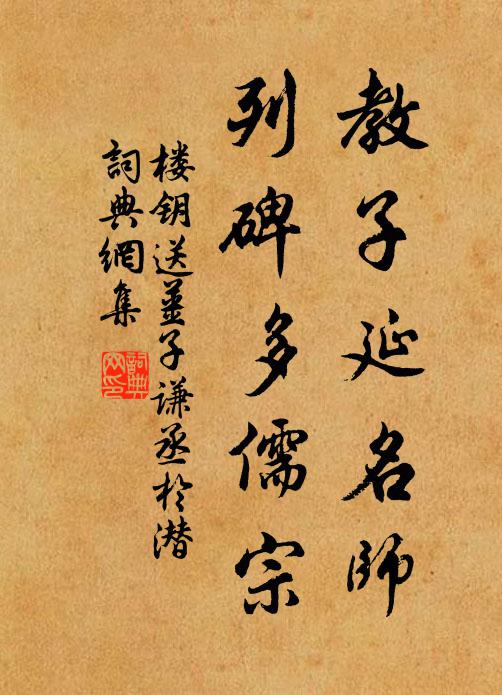 教子延名師
列碑多儒宗
楼钥送姜子谦丞於潜
詞典網集
詞典網印